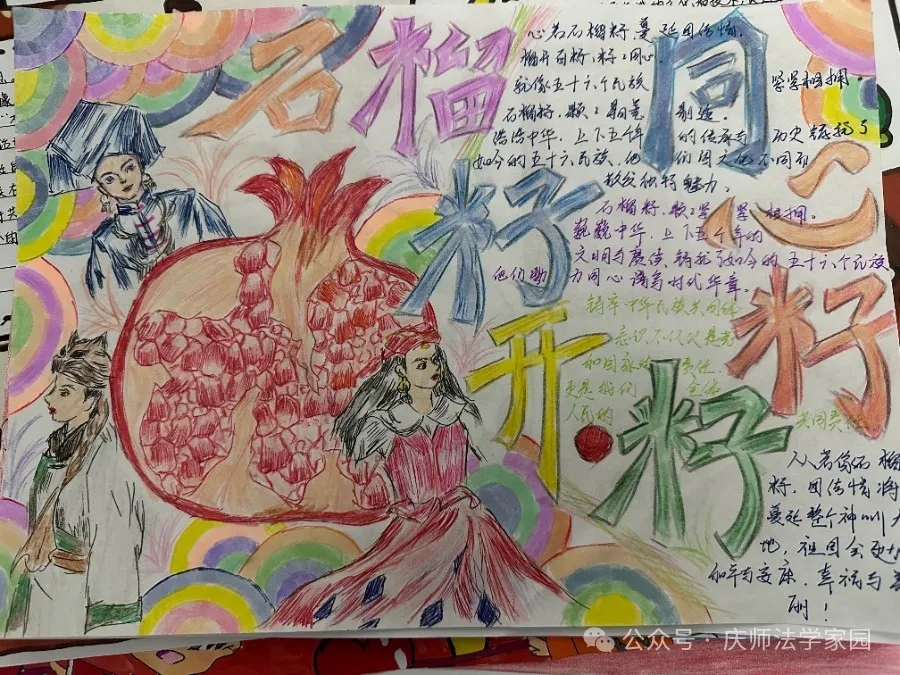 石榴籽开
籽籽同心
心若石榴籽,蔓延团结情,
榴开百籽,籽籽同心。
就像五十六个民族 紧紧相拥。
石榴籽,颗颗
浩浩中华,上下五千年 的传承与 历史 了
如今的五十六个民族,他们因文化不同而
散发独特魅力。
石榴籽,颗颗紧紧相拥。
巍巍中华,上下五千年的
文明与 铸 了如今的 五十六个民族
他们勠力同心 谱写时代华章。
铸牢中华民族共同体
意识,不仅仅是党
和国家的 责任,
更是我们 全体
人民的 共同责任
人人若像石榴
籽,团结情将
蔓延整个神州大
地,祖国会更加
和平与安康,幸福与美
丽!
公众号·庆师法学家园